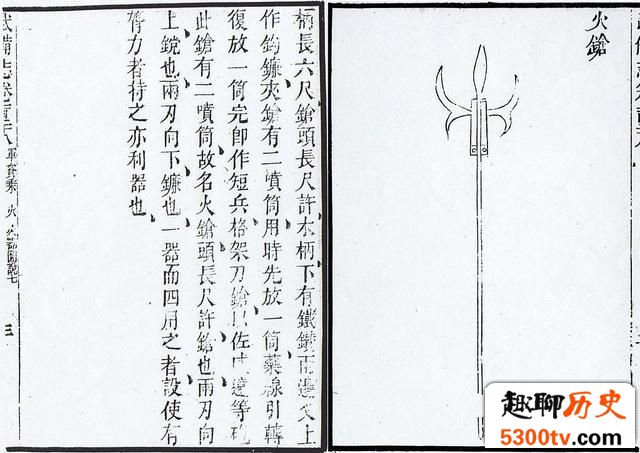 火鎗
柄長六尺鎗頭長尺許木柄下有鐵鑽兩邊叉上
作鈎鐮夾鎗有二噴筒用時先放一筒藥線引轉
復放一筒完卽作短兵格架刀鎗以佐威遠等砲
此鎗有二噴筒故名火鎗頭長尺許鎗也兩刃向
上鎲也兩刃向下鐮也一器而四用之者設使有
膂力者持之亦利器也
武備志卷 軍資乘 火 火器圖說七 三
趣聊历史
5300tv.com